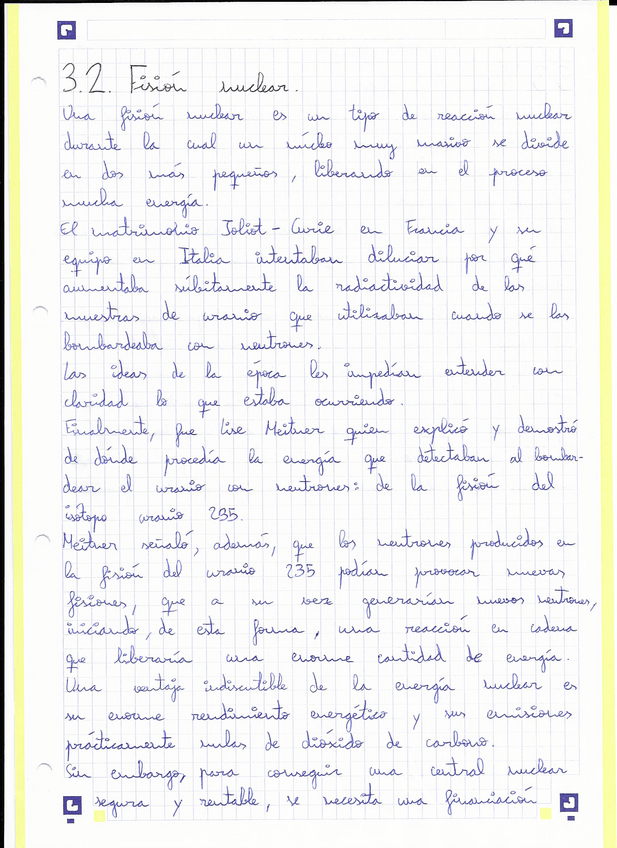 3.2. Fisión nuclear.
Una fisión nuclear es un tipo de reacción nuclear
durante la cual un núcleo muy masivo se divide
en dos más pequeños, liberando en el proceso
mucha energía.
El matrimonio Joliot-Curie en Francia y su
equipo en Italia intentaban diluciar por qué
aumentaba súbitamente la radiactividad de las
muestras de uranio que utilizaban cuando se las
bombardeaba con neutrones.
Las ideas de la época les impedían entender con
claridad lo que estaba ocurriendo.
Finalmente, fue Lise Meitner quien explicó y demostró
de dónde procedía la energía que detectaban al bombar-
dear el uranio con neutrones: de la fisión del
isótopo uranio 235.
Meitner señaló, además, que los neutrones producidos en
la fisión del uranio 235 podían provocar nuevas
fisiones, que a su vez generarían nuevos neutrones,
iniciando, de esta forma, una reacción en cadena
que liberaría una enorme cantidad de energía.
Una ventaja indiscutible de la energía nuclear es
su enorme rendimiento energético y sus emisiones
prácticamente nulas de dióxido de carbono.
Sin embargo, para conseguir una central nuclear
segura y rentable, se necesita una financiación